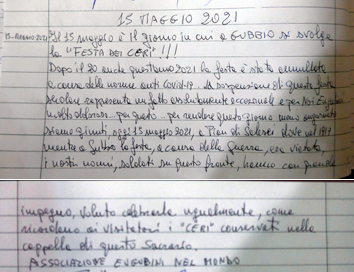 15 MAGGIO 2021
15-MAGGIO 2021 Il 15 maggio è il giorno in cui a GUBBIO si svolge
la "FESTA DEI CERI" !!!
Dopo il 20 anche quest'anno 2021 la festa è stata annullata
a causa delle norme anti Covid-19. La sospensione di questa festa
secolare rappresenta un fatto assolutamente eccezionale e per noi Eugubini
molto doloroso - per questo - per rendere questo giorno meno
siamo giunti, oggi 15 maggio 2021, a Pian di Salesei dove nel 1917
mentre a Gubbio la festa, a causa della guerra, era vietata,
i nostri nonni, soldati su questo fronte, hanno con grande
impegno, voluto celebrarla ugualmente, come
ricordano ai visitatori i "CERI" conservati nella
cappella di questo Sacrario.
ASSOCIAZIONE EUGUBINI NEL MONDO